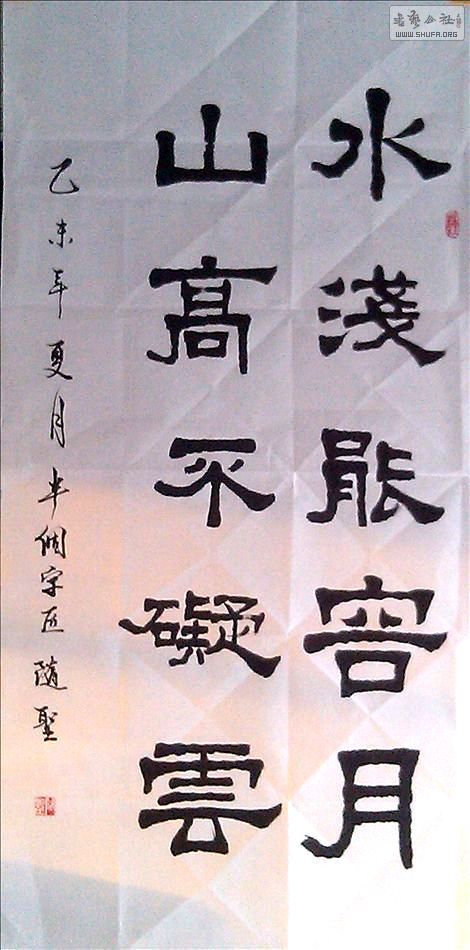 书艺公社
WWW.SHUFA.ORG
水淺能容月
山高不礙雲
乙未年夏月半個字匠隨聖